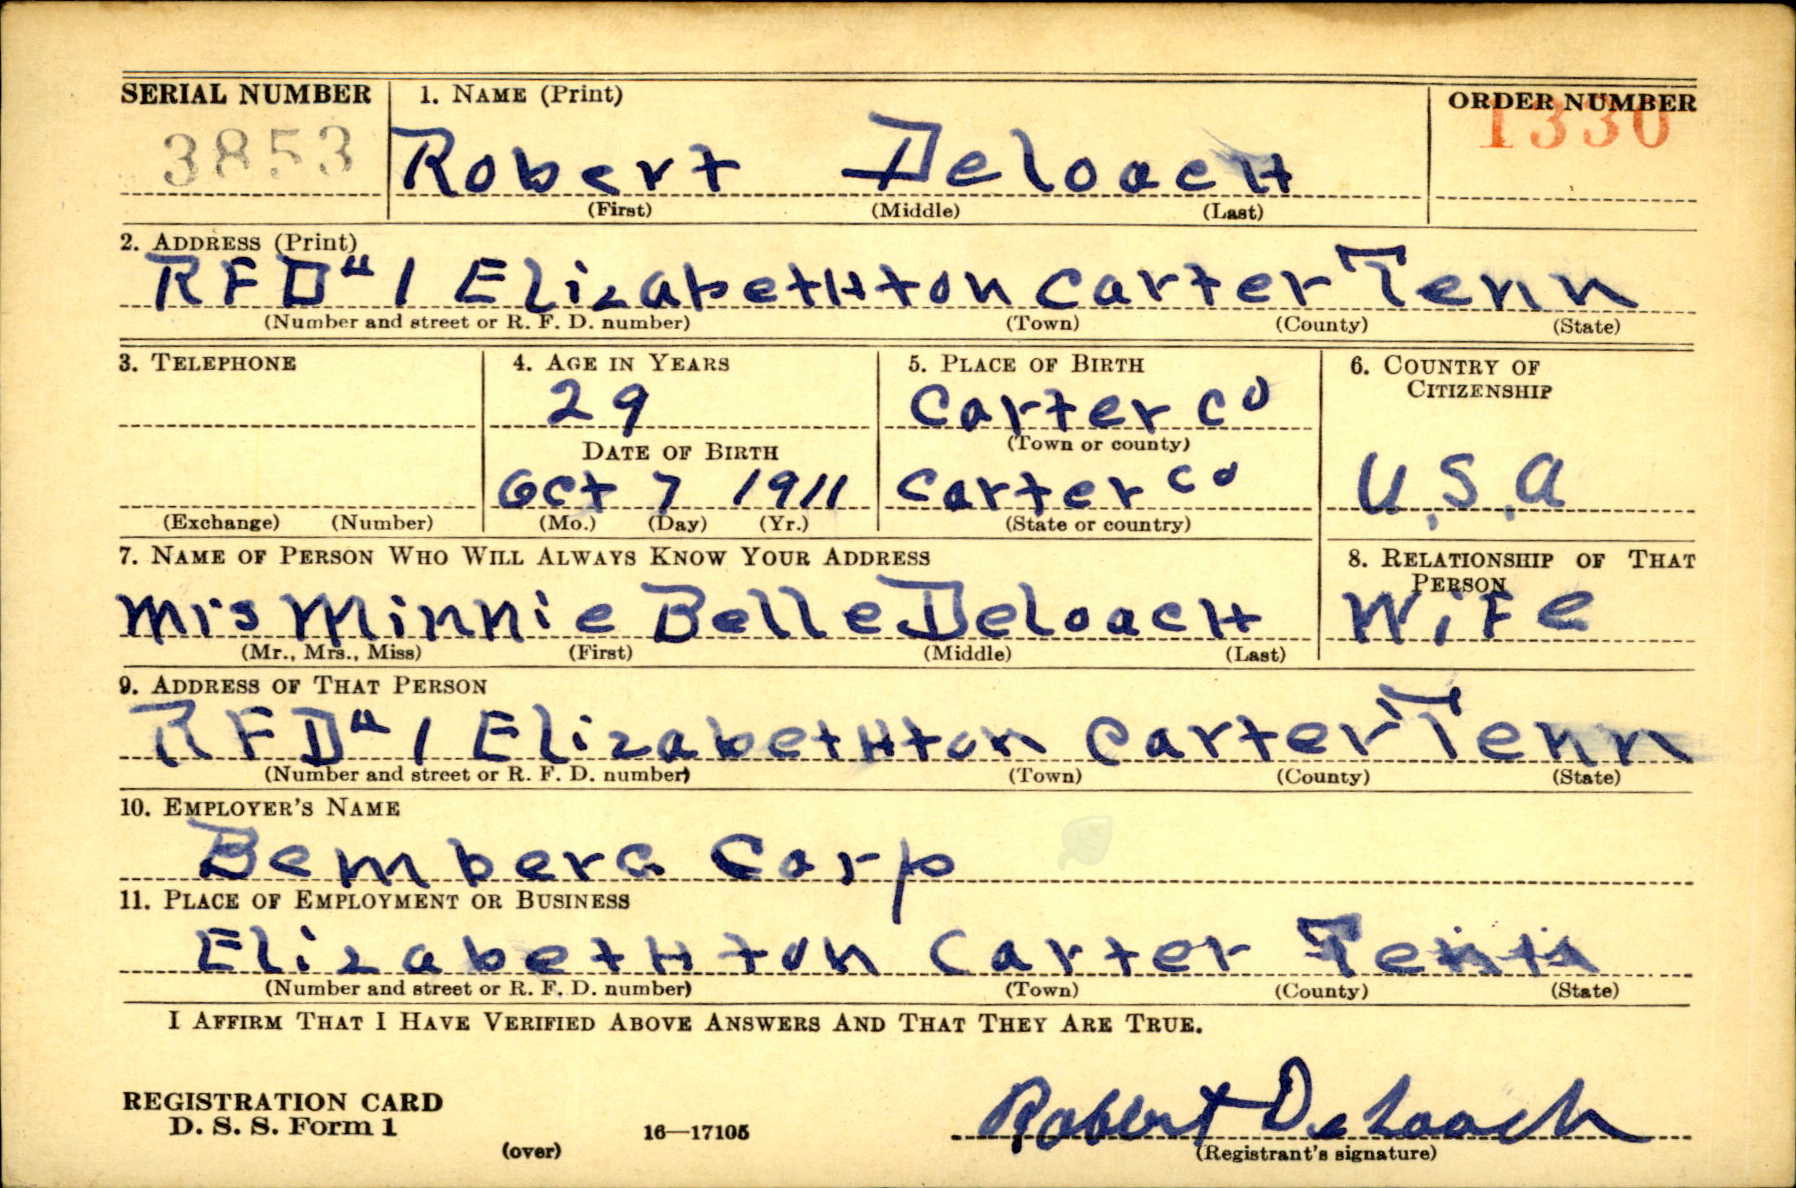 SERIAL NUMBER 1. NAME (Print) ORDER NUMBER
3853 Robert DeloacH 1330
(First) (Middle) (Last)
2. ADDRESS (Print)
RFD " 1 ElizabetHton Carter Tenn
(Number and street or R. F. D. number) (Town) (County) (State)
3. TELEPHONE 4. AGE IN YEARS 5. PLACE OF BIRTH 6. COUNTRY OF CITIZENSHIP
29 Carter Co
DATE OF BIRTH (Town or county)
Oct 7 1911 Carter Co U.S.A
(Exchange) (Number) (Mo.) (Day) (Yr.) (State or country)
7. NAME OF PERSON WHO WILL ALWAYS KNOW YOUR ADDRESS 8. RELATIONSHIP OF THAT PERSON
Mrs Minnie Belle DeloacH WiFe
(Mr., Mrs., Miss) (First) (Middle) (Last)
9. ADDRESS OF THAT PERSON
RFD " 1 ElizabetHton Carter Tenn
(Number and street or R. F. D. number) (Town) (County) (State)
10. EMPLOYER'S NAME
Bemberg Corp
11. PLACE OF EMPLOYMENT OR BUSINESS
ElizabetHton Carter Tenn
(Number and street or R. F. D. number) (Town) (County) (State)
I AFFIRM THAT I HAVE VERIFIED ABOVE ANSWERS AND THAT THEY ARE TRUE.
REGISTRATION CARD
D. S. S. Form 1 16—17105 Robert DeLoach
(over) (Registrant's signature)